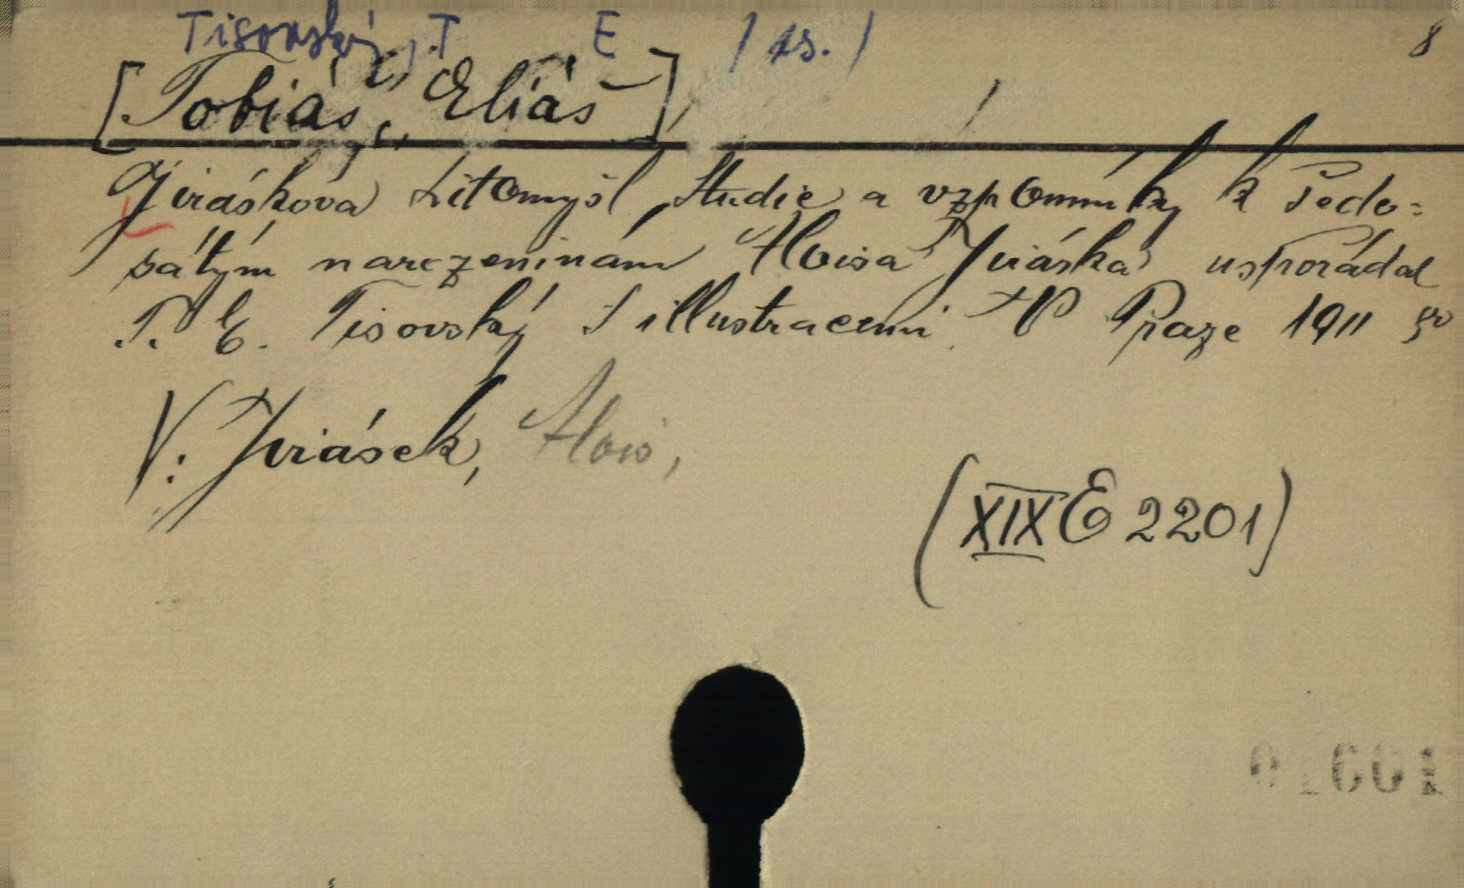 Tisovský, T E / rs. /
8
[Tobiáš, Eliáš]
Jiráskova Litomyšl, Studie a vzpomínky k šede=
sátým narozeninám Aloisa Jiráska uspořádal
T. E. Tisovský S illustracemi V Praze 1911 8o
V: Jirásek, Alois,
(XIX E 2201)
01601